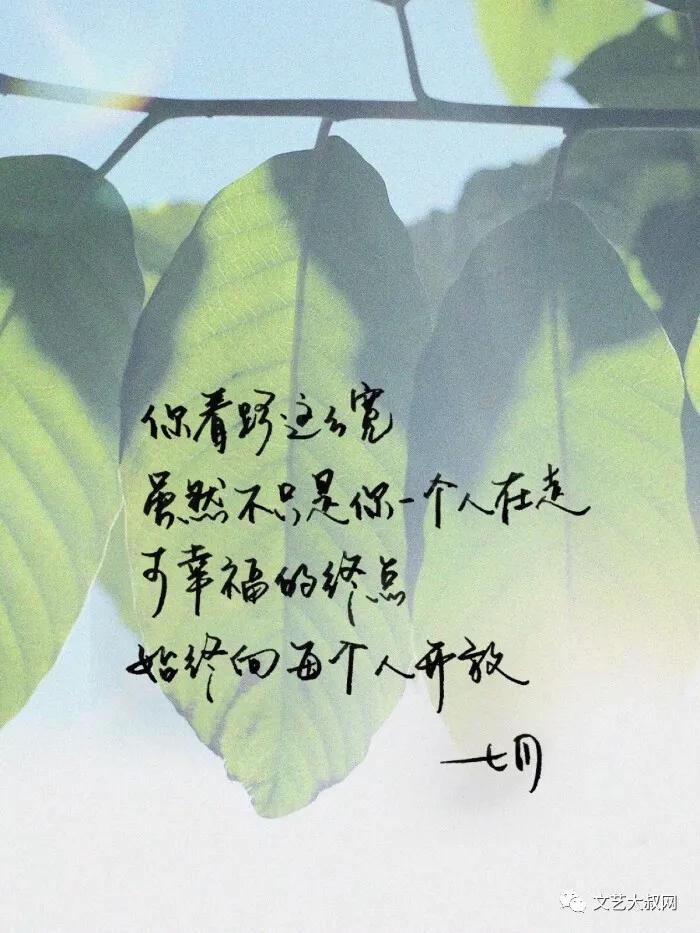 你看路这么宽
虽然不只是你一个人在走
可幸福的终点
始终向每个人开放
一七月
文艺大叔网